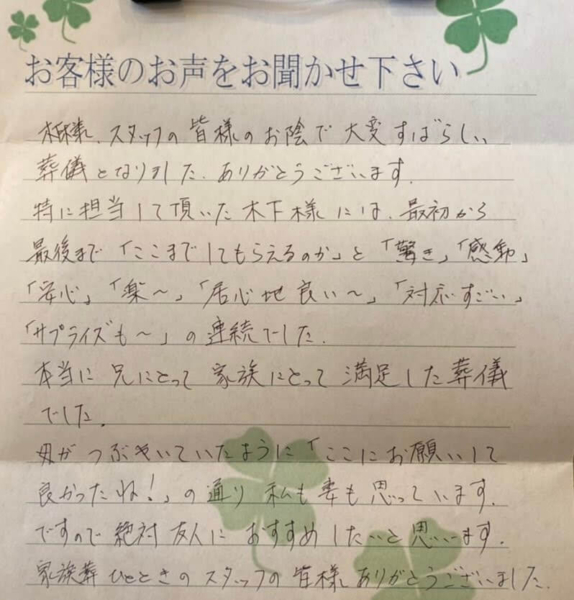 お客様のお声をお聞かせ下さい
スタッフの皆様のお陰で大変すばらしい
葬儀となりました。ありがとうございます。
特に担当して頂いた木下様には、最初から
最後まで「ここまでしてもらえるのか」と「驚き」「感動」
「安心」「楽〜」「居心地良い〜」「対応すごい」
「サプライズも〜」の連続でした。
本当に兄にとって家族にとって満足した葬儀
でした。
母がつぶやいていたように「ここにお願いして
良かったね!」の通り私も妻も思っています。
ですので絶対友人におすすめしたいと思います。
家族葬ひとときのスタッフの皆様ありがとうございました。